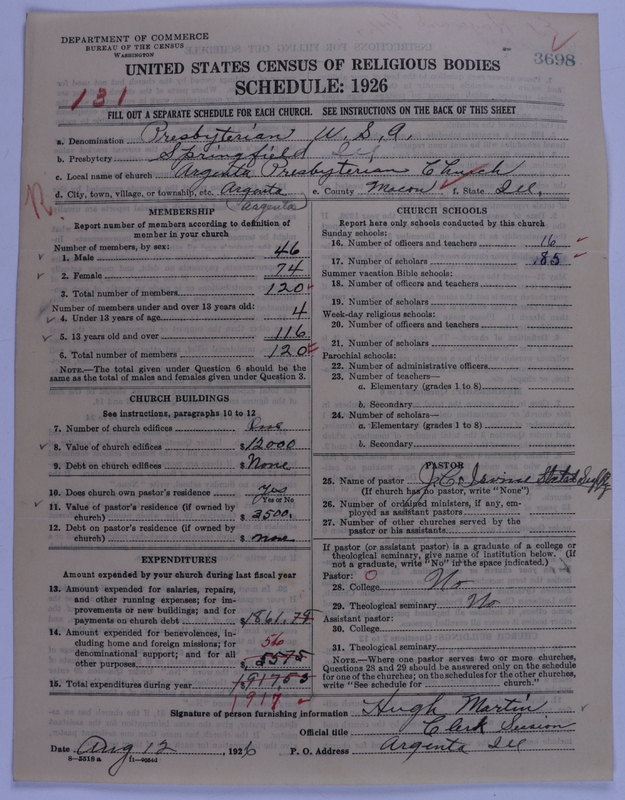 DEPARTMENT OF COMMERCE
BUREAU OF THE CENSUS
WASHINGTON
3698
UNITED STATES CENSUS OF RELIGIOUS BODIES
SCHEDULE: 1926
131
FILL OUT A SEPARATE SCHEDULE FOR EACH CHURCH. SEE INSTRUCTIONS ON THE BACK OF THIS SHEET
a. Denomination Presbyterian U. S. A.
b. Presbytery Springfield
c. Local name of church Argenta Presbyterian Church
d. City, town, village, or township, etc. Argenta e. County Macon f. State Ill.
(Argenta)
MEMBERSHIP
Report number of members according to definition of member in your church
Number of members, by sex:
1. Male 46
2. Female 74
3. Total number of members 120
Number of members under and over 13 years old:
4. Under 13 years of age 4
5. 13 years old and over 116
6. Total number of members 120
NOTE.—The total given under Question 6 should be the same as the total of males and females given under Question 3.
CHURCH BUILDINGS
See instructions, paragraphs 10 to 12
7. Number of church edifices One
8. Value of church edifices $12000
9. Debt on church edifices $None
10. Does church own pastor's residence Yes
Yes or No
11. Value of pastor's residence (if owned by church) $2500.
12. Debt on pastor's residence (if owned by church) $none
EXPENDITURES
Amount expended by your church during last fiscal year
13. Amount expended for salaries, repairs, and other running expenses; for improvements or new buildings; and for payments on church debt $1861.78
14. Amount expended for benevolences, including home and foreign missions; for denominational support; and for all other purposes 56 $5575
15. Total expenditures during year 1917.53
1917
CHURCH SCHOOLS
Report here only schools conducted by this church
Sunday schools:
16. Number of officers and teachers 16
17. Number of scholars 185
Summer vacation Bible schools:
18. Number of officers and teachers
19. Number of scholars
Week-day religious schools:
20. Number of officers and teachers
21. Number of scholars
Parochial schools:
22. Number of administrative officers
23. Number of teachers—
a. Elementary (grades 1 to 8)
b. Secondary
24. Number of scholars—
a. Elementary (grades 1 to 8)
b. Secondary
PASTOR
25. Name of pastor J. C. Irvine Stated Supply
(If church has no pastor, write "None")
26. Number of ordained ministers, if any, employed as assistant pastors
27. Number of other churches served by the pastor or his assistants
If pastor (or assistant pastor) is a graduate of a college or theological seminary, give name of institution below. (If not a graduate, write "No" in the space indicated.)
Pastor: O
28. College No
29. Theological seminary No
Assistant pastor:
30. College
31. Theological seminary
NOTE.—Where one pastor serves two or more churches, Questions 28 and 29 should be answered only on the schedule for one of the churches; on the schedules for the other churches, write "See schedule for church."
Signature of person furnishing information Hugh Martin
Official title Clerk Session
Date Aug 12, 1926 P. O. Address Argenta Ill
8—5518a 11—9054d